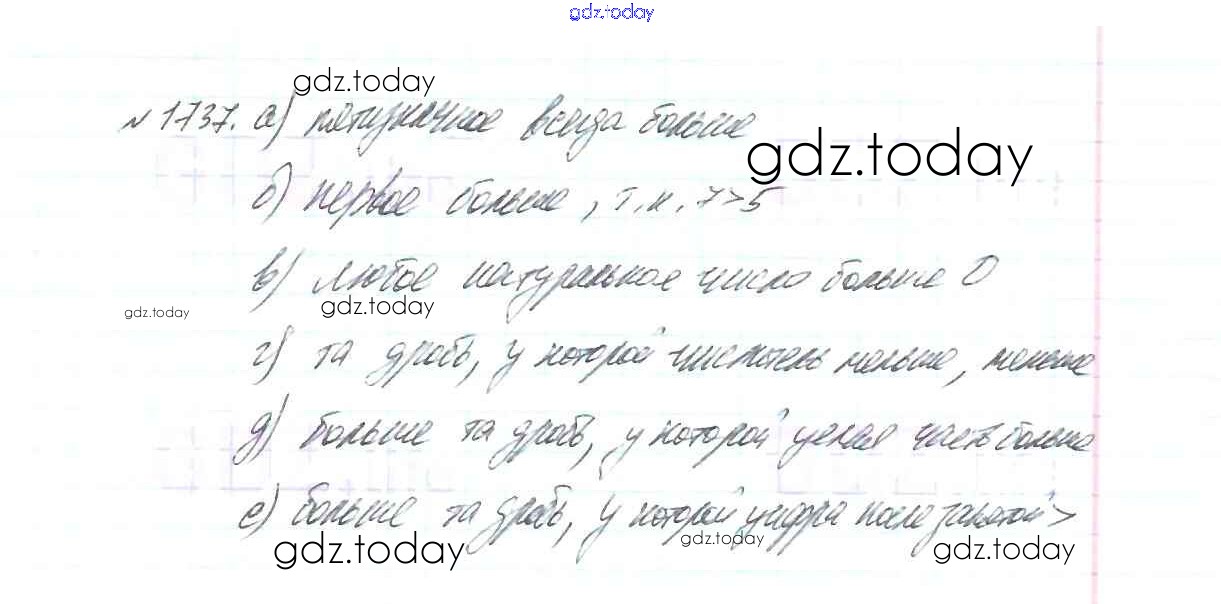 gdz.today
gdz.today
№ 1737. а) пятизначное всегда больше
gdz.today
б) первое больше, т.к. 7>5
в) любое натуральное число больше 0
gdz.today
gdz.today
г) та дробь, у которой числитель меньше, меньше
д) больше та дробь, у которой целая часть больше
е) больше та дробь, у которой цифра после запятой >
gdz.today
gdz.today
gdz.today